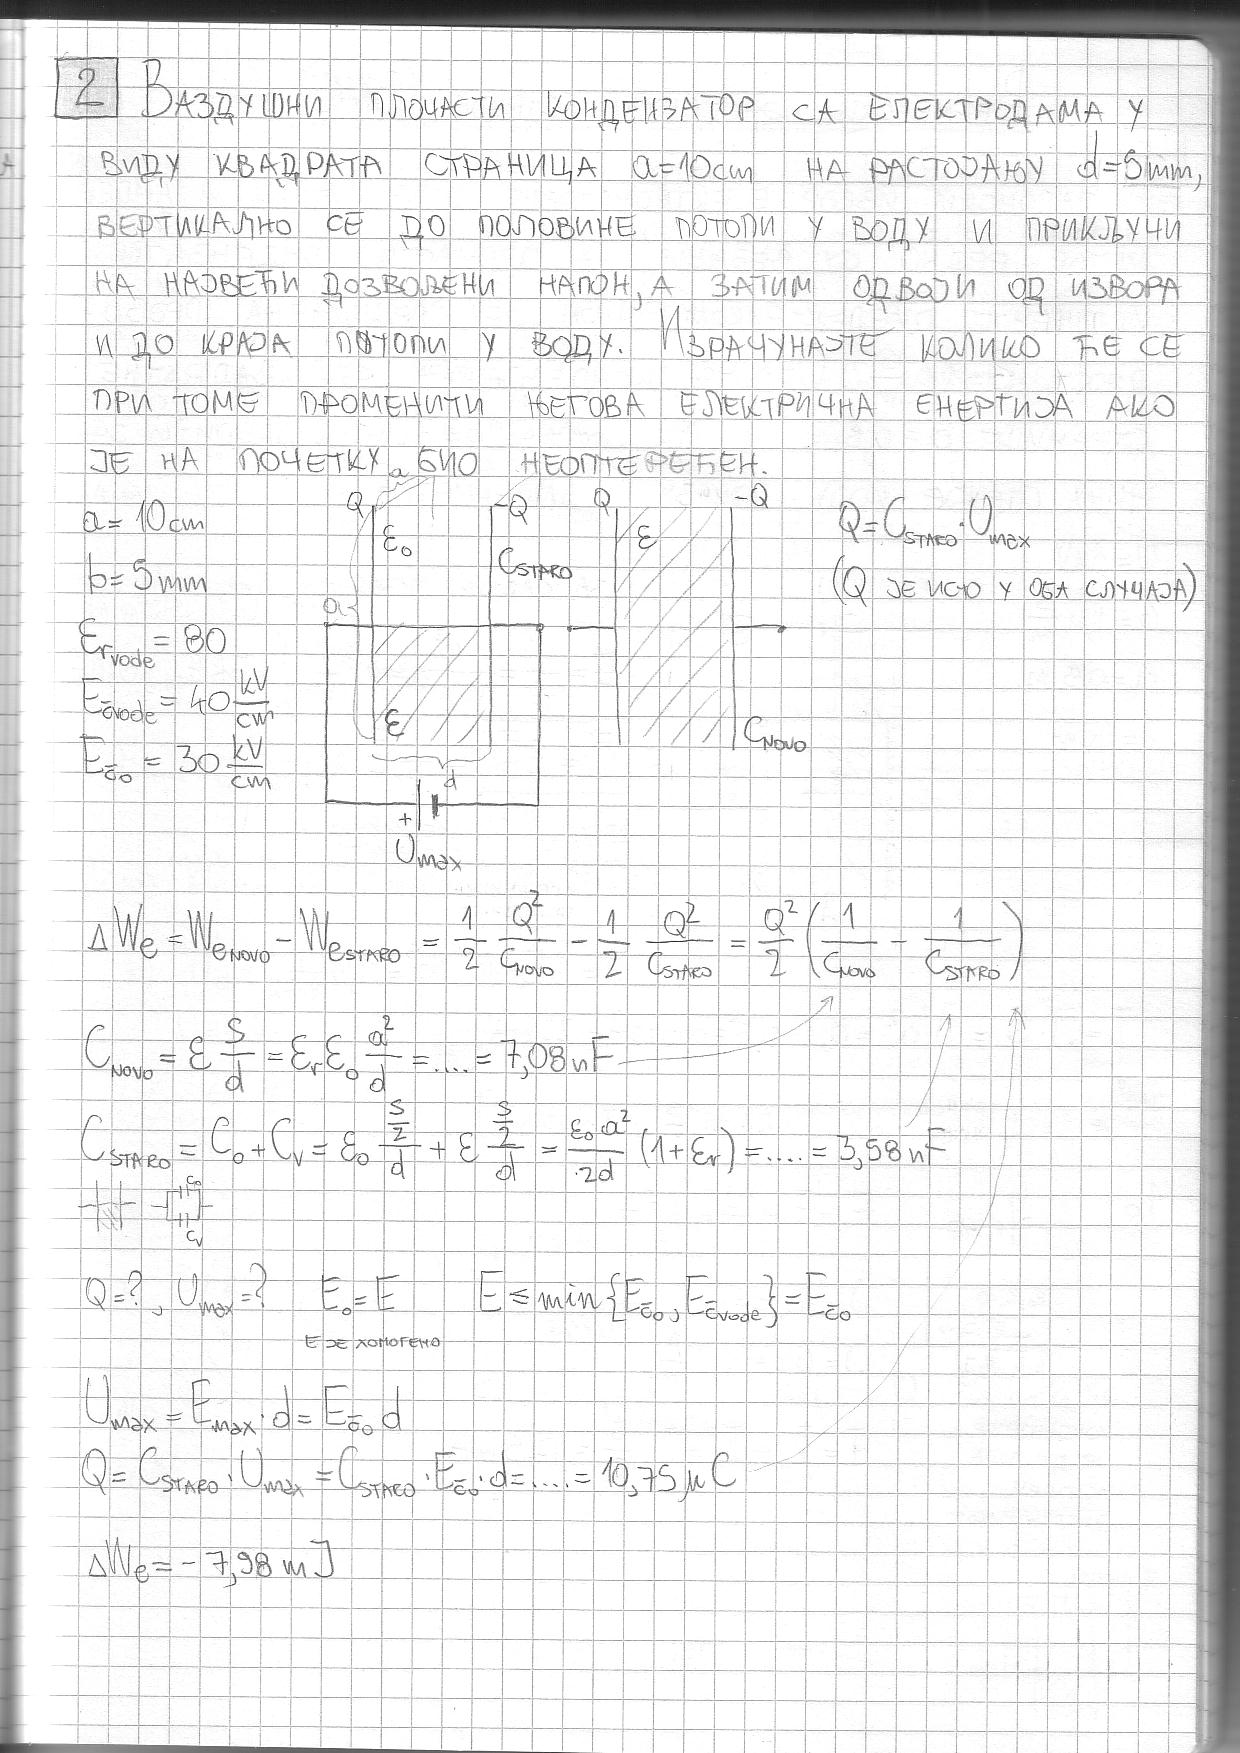 2 ВАЗДУШНИ ПЛОЧАСТИ КОНДЕНЗАТОР СА ЕЛЕКТРОДАМА У
ВИДУ КВАДРАТА СТРАНИЦА a=10cm НА РАСТОЈАЊУ d=5mm,
ВЕРТИКАЛНО СЕ ДО ПОЛОВИНЕ ПОТОПИ У ВОДУ И ПРИКЉУЧИ
НА НАЈВЕЋИ ДОЗВОЉЕНИ НАПОН, А ЗАТИМ ОДВОЈИ ОД ИЗВОРА
И ДО КРАЈА ПОТОПИ У ВОДУ. ИЗРАЧУНАЈТЕ КОЛИКО ЋЕ СЕ
ПРИ ТОМЕ ПРОМЕНИТИ ЊЕГОВА ЕЛЕКТРИЧНА ЕНЕРГИЈА АКО
ЈЕ НА ПОЧЕТКУ БИО НЕОПТЕРЕЋЕН.
a=10cm
b=5mm
εrvode = 80
Ečvode = 40 kV/cm
Eč0 = 30 kV/cm
a
Q -Q Q -Q
ε0 ε
CSTARO
a
ε
CNOVO
d
+
Umax
Q=CSTARO·Umax
(Q ЈЕ ИСТО У ОБА СЛУЧАЈА)
ΔWe = WeNOVO - WeSTARO = 1/2 Q²/CNOVO - 1/2 Q²/CSTARO = Q²/2 (1/CNOVO - 1/CSTARO)
CNOVO = ε S/d = εr ε0 a²/d = .... = 7,08 nF
CSTARO = C0 + Cv = ε0 (S/2)/d + ε (S/2)/d = ε0 a²/2d (1+εr) = .... = 3,58 nF
C0
Cv
Q=?, Umax=? E0=E E ≤ min{Eč0, Ečvode} = Eč0
E ЈЕ ХОМОГЕНО
Umax = Emax·d = Eč0 d
Q = CSTARO·Umax = CSTARO·Eč0·d = .... = 10,75 μC
ΔWe = -7,98 mJ